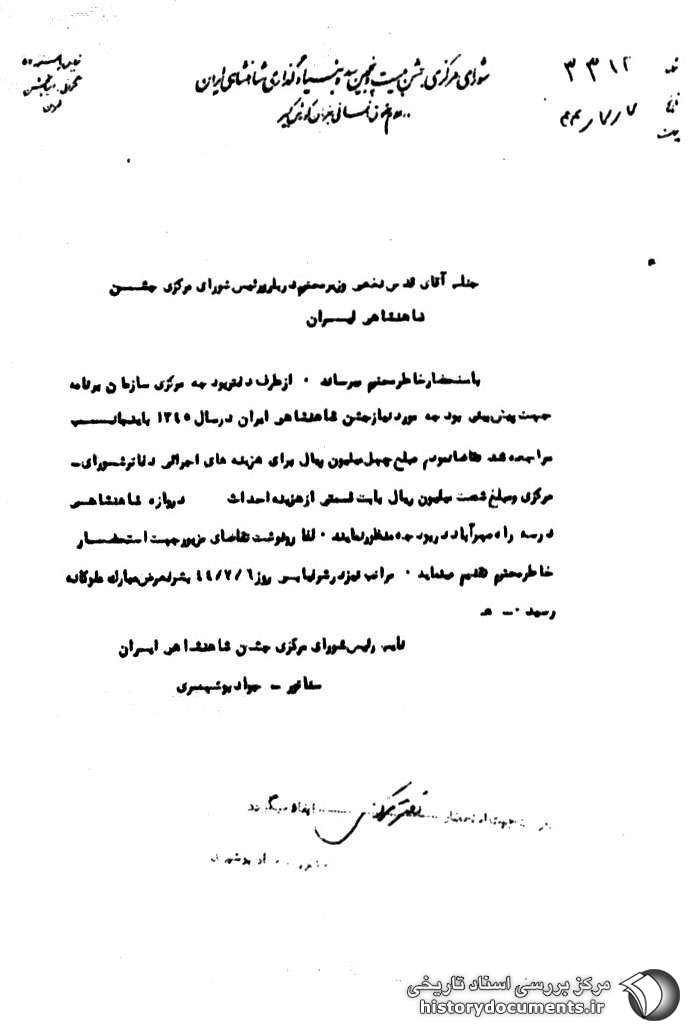 شورای مرکزی جشن بیست و پنجمین سده بنیادگذاری شاهنشاهی ایران
۳۳۱۲
۴۴/۷/۷
جناب آقای قدس نخعی وزیر محترم دربار و رئیس شورای مرکزی جشن
شاهنشاهی ایران
باستحضار خاطر محترم میرساند ۰ از طرف دفتر بودجه مرکزی سازمان برنامه
جهت پیش بینی بودجه مورد نیاز جشن شاهنشاهی ایران در سال ۱۳٤٥ باینجانب
مراجعه شد تقاضا نمودم مبلغ چهل میلیون ریال برای هزینه های اجرائی دفاتر شورای-
مرکزی و مبلغ شصت میلیون ریال بابت قسمتی از هزینه احداث دروازه شاهنشاهی
در سه راه مهرآباد در بودجه منظور نمایند ۰ لذا رونوشت تقاضای مزبور جهت استحضار
خاطر محترم تقدیم میدارد ۰ مراتب نیز در شرفیابی روز ٤٤/۷/٦ بشرف عرض مبارک ملوکانه
رسید ۰-
نایب رئیس شورای مرکزی جشن شاهنشاهی ایران
سناتور - جواد بوشهری
جهت استحضار دفتر مرکزی ایفاد میگردد
بوشهری
مرکز بررسی اسناد تاریخی
historydocuments.ir